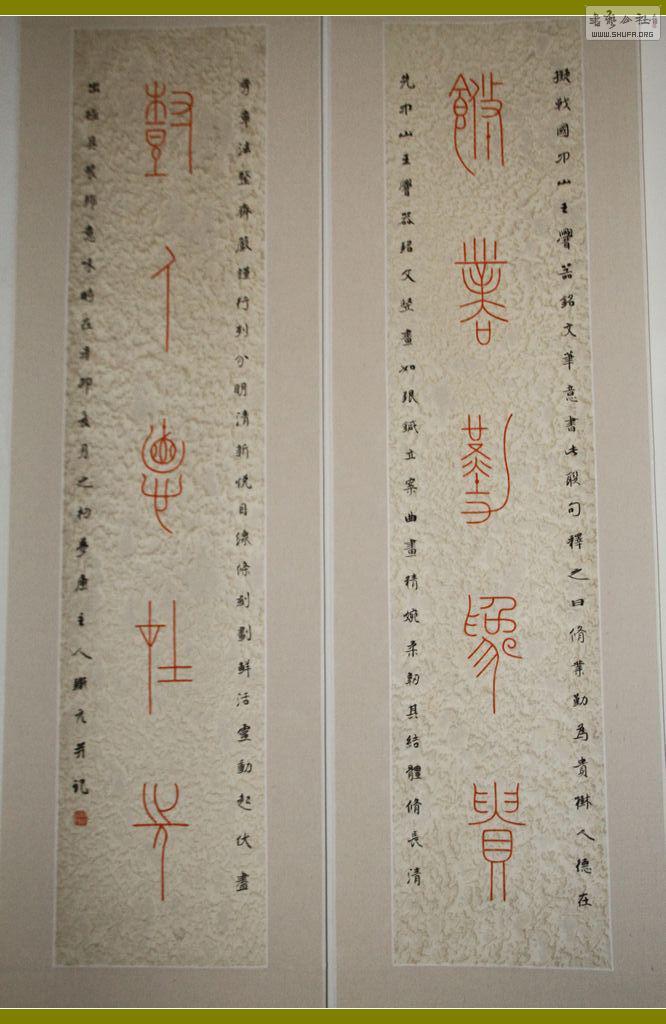 書藝公社
WWW.SHUFA.ORG
擬戰國中山王譽器銘文筆意書此联句釋之曰脩業勤為貴樹人德在
脩業勤為貴
先中山王譽器銘文竪畫如银鍼立案曲畫精婉柔韌其結體脩長清
秀章法整齊嚴謹行列分明清新悦目線條刻劃鮮活靈動起伏盡
樹人德在先
出極具裝飾意味時在辛卯亥月之初夢唐主人并記